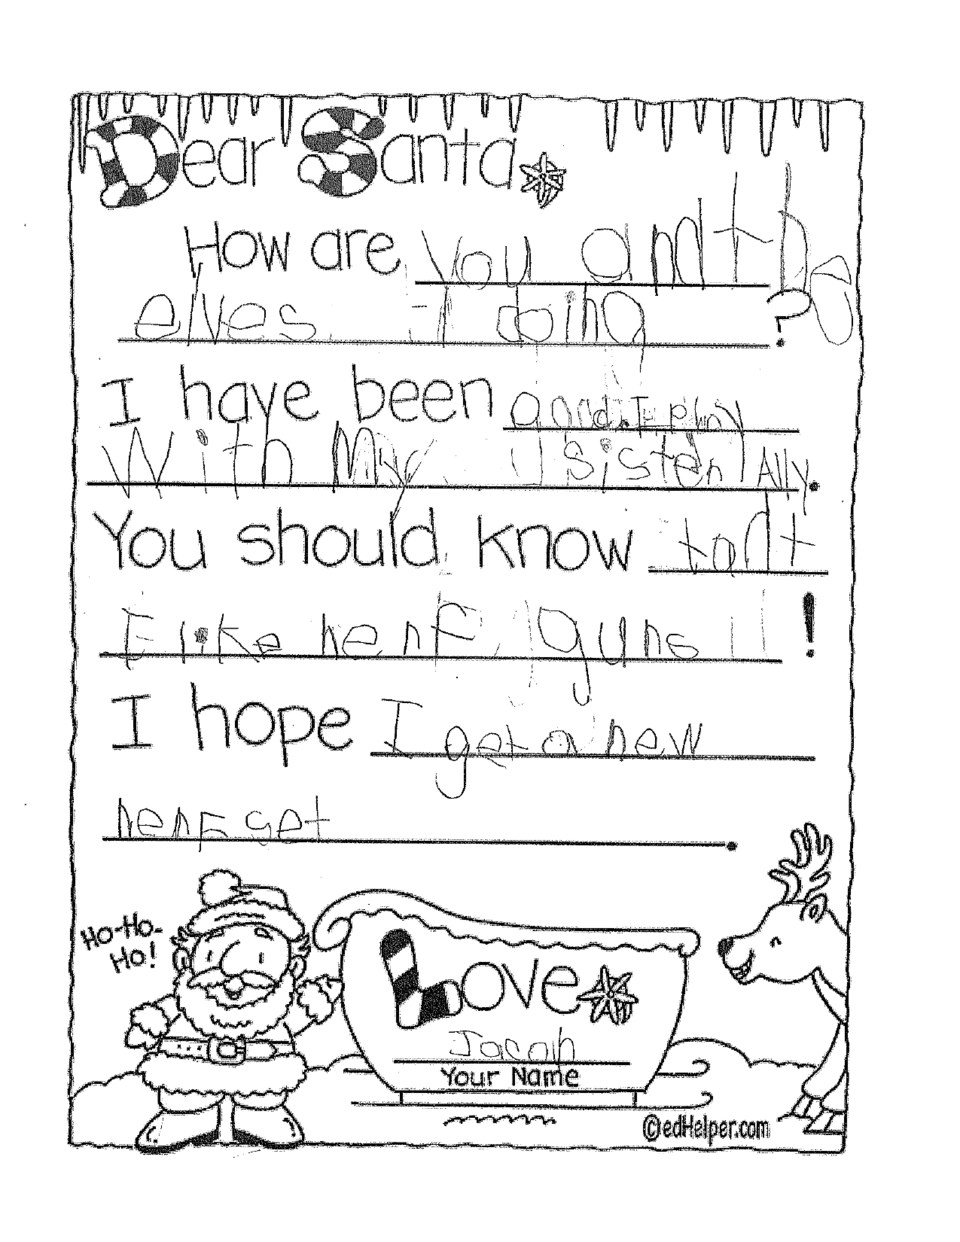 Dear Santa
How are you and the
elves doing ?
I have been good. I play
With My sister Ally.
You should know taht
I like nerf guns !
I hope I get a new
nerf get .
Ho-Ho-
Ho!
Love
Jacob
Your Name
©edHelper.com